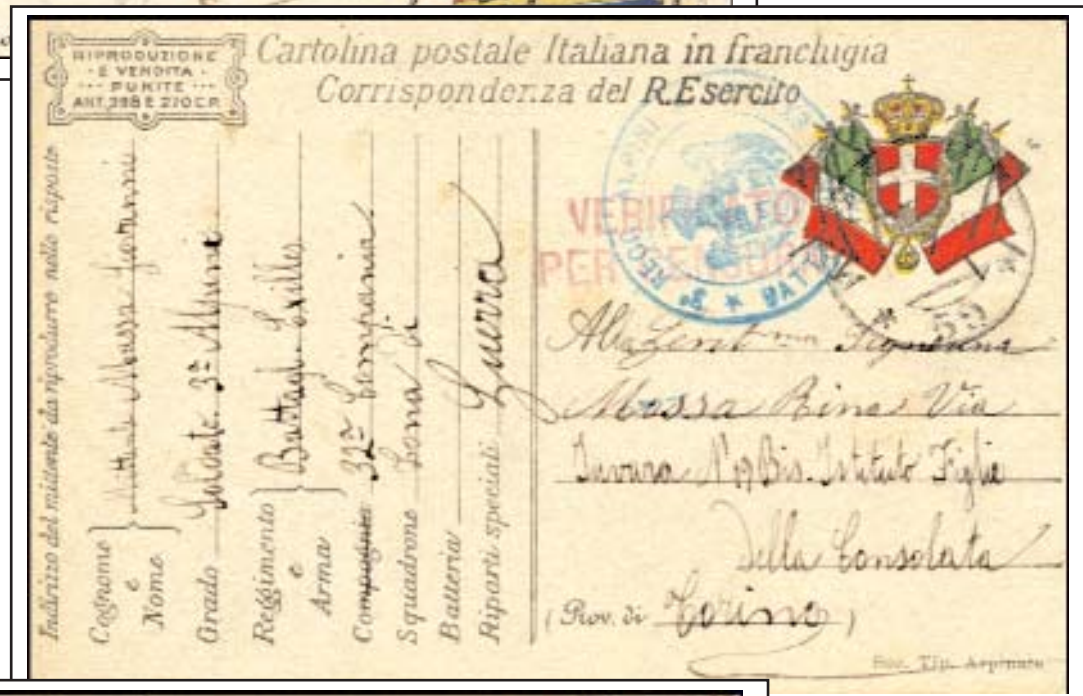 RIPRODUZIONE
E VENDITA
PUNITE
ANT. 298 E 210 C.P.
Cartolina postale Italiana in franchigia
Corrispondenza del R. Esercito
Indirizzo del mittente da riprodurre nella risposta
Cognome e Nome Mittente Massa Giovanni
Grado Soldato 3º Alpini
Reggimento e Arma Battagl. Exilles
Compagnia 32ª Compagnia
Squadrone Zona di
Batteria
Riparti speciali Guerra
VERIFICATO
PER CENSURA
3º REGG. ALPINI
55
Alla Gent ma Signorina
Massa Via
Nº 19 Bis. Istituto Figlie
della Consolata
(Prov. di Torino)
Soc. Tip. Arpinate